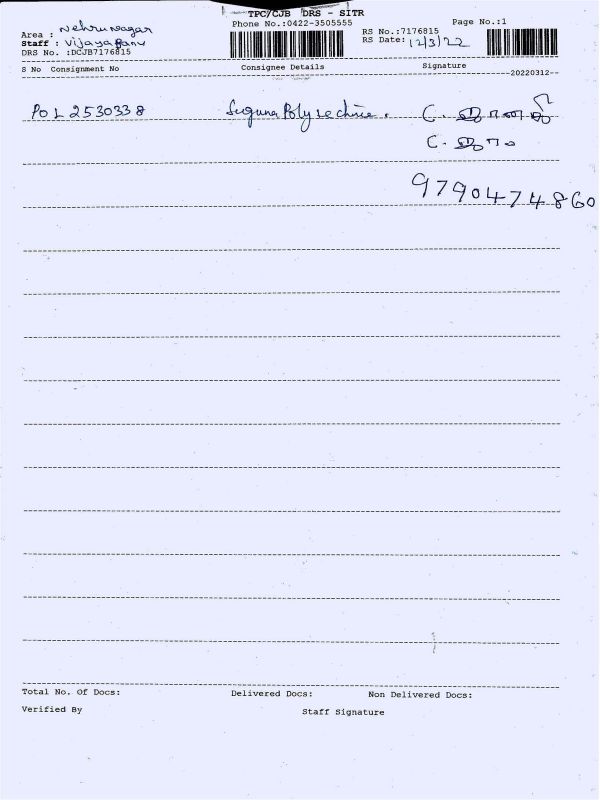 TPC/CJB DRS - SITR
Phone No.:0422-3505555
Page No.:1
Area : Nehrunagar
Staff : Vijayabanu
DRS No. :DCJB7176815
RS No.:7176815
RS Date: 12/3/22
S No Consignment No Consignee Details Signature
--20220312--
POL2530338 Suguna Polytechnic. C.
C.
9790474860
Total No. Of Docs: Delivered Docs: Non Delivered Docs:
Verified By Staff Signature